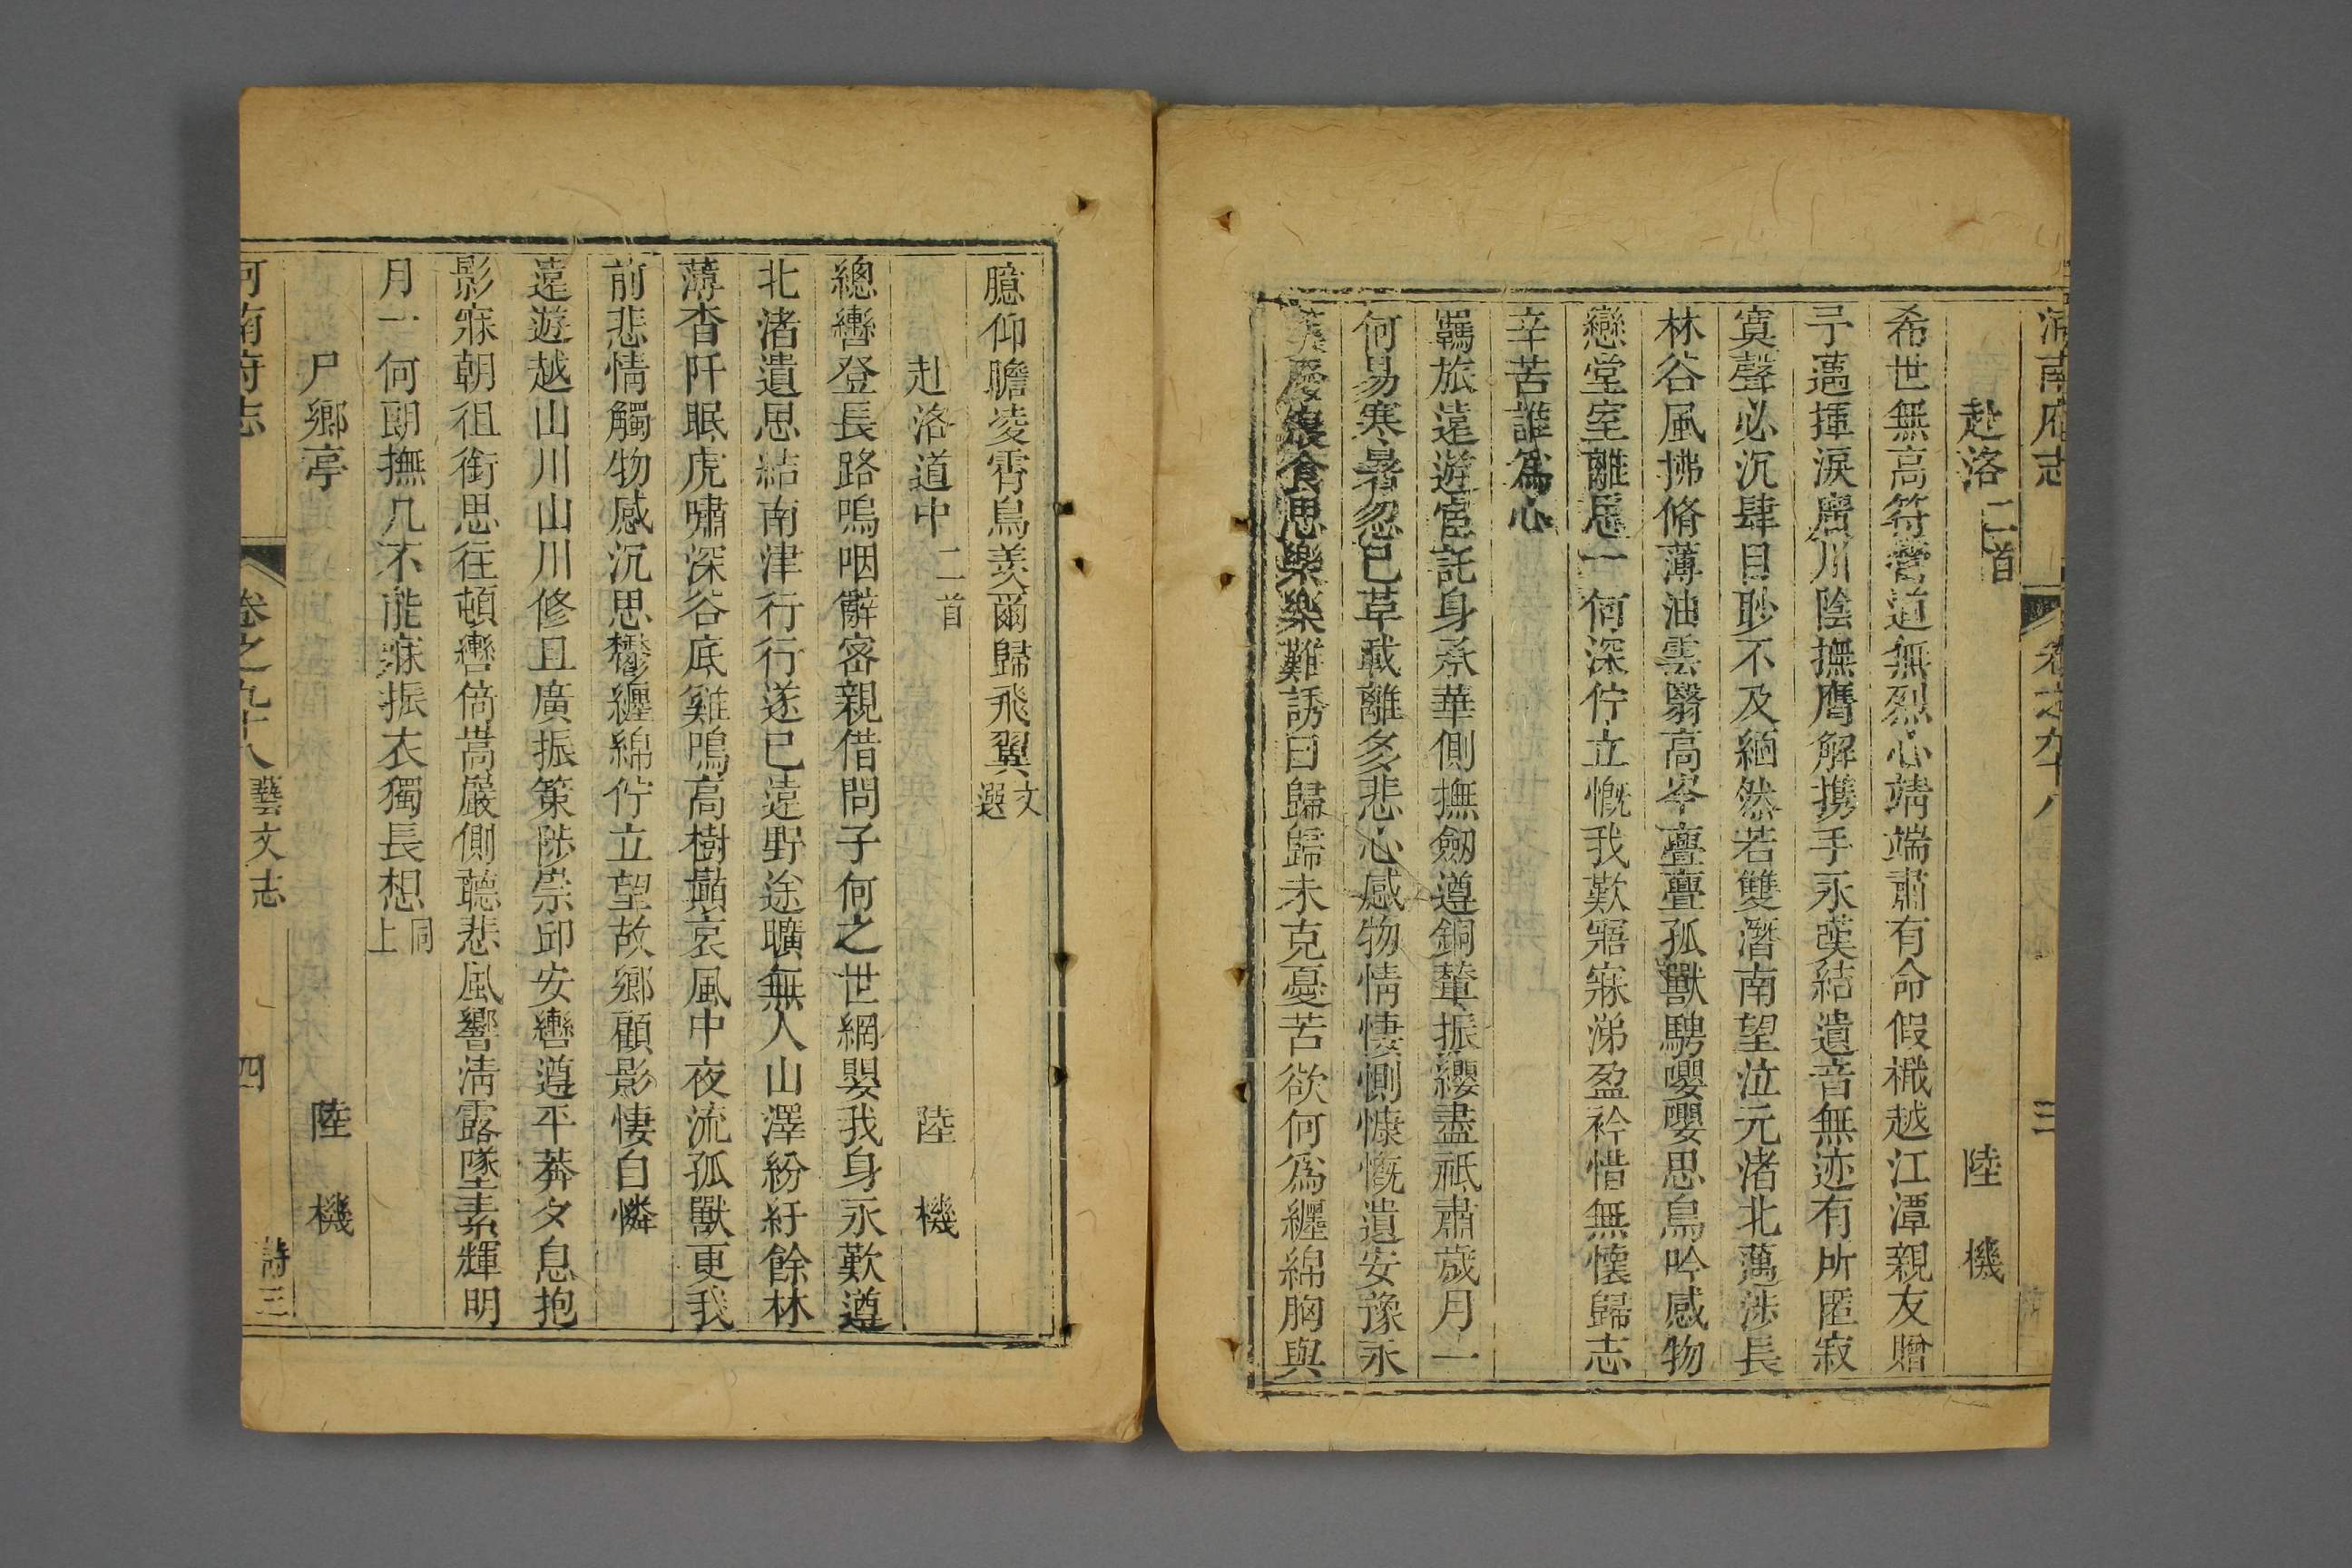 河南府志 卷之九十八 三
赴洛二首 陸機
希世無高符營道無烈心靖端肅有命假檝越江潭親友贈
予邁揮淚廣川陰撫膺解携手永歎結遺音無迹有所匿寂
寞聲必沉肆目眇不及緬然若雙潛南望泣元渚北邁涉長
林谷風拂脩薄油雲翳高岑亹亹孤獸騁嚶嚶思鳥吟感物
戀堂室離思一何深佇立慨我歎寤寐涕盈衿惜無懷歸志
辛苦誰為心
羈旅遠遊宦託身承華側撫劒遵銅輦振纓盡祗肅歲月一
何易寒暑忽已革載離多悲心感物情悽惻慷慨遺安豫永
歎廢寢食思樂樂難誘曰歸歸未克憂苦欲何為纏綿胸與
臆仰瞻凌霄鳥羨爾歸飛翼文選
赴洛道中二首 陸機
總轡登長路嗚咽辭密親借問子何之世網嬰我身永歎遵
北渚遺思結南津行行遂已遠野途曠無人山澤紛紆餘林
薄杳阡眠虎嘯深谷底雞鳴高樹巔哀風中夜流孤獸更我
前悲情觸物感沉思鬱纏綿佇立望故鄉顧影悽自憐
遠遊越山川山川修且廣振策陟崇邱安轡遵平莽夕息抱
影寐朝徂銜思往頓轡倚嵩巖側聽悲風響清露墜素輝明
月一何朗撫几不能寐振衣獨長想同上
尸鄉亭 陸機
河南府志 卷之九十八 藝文志 四 詩三